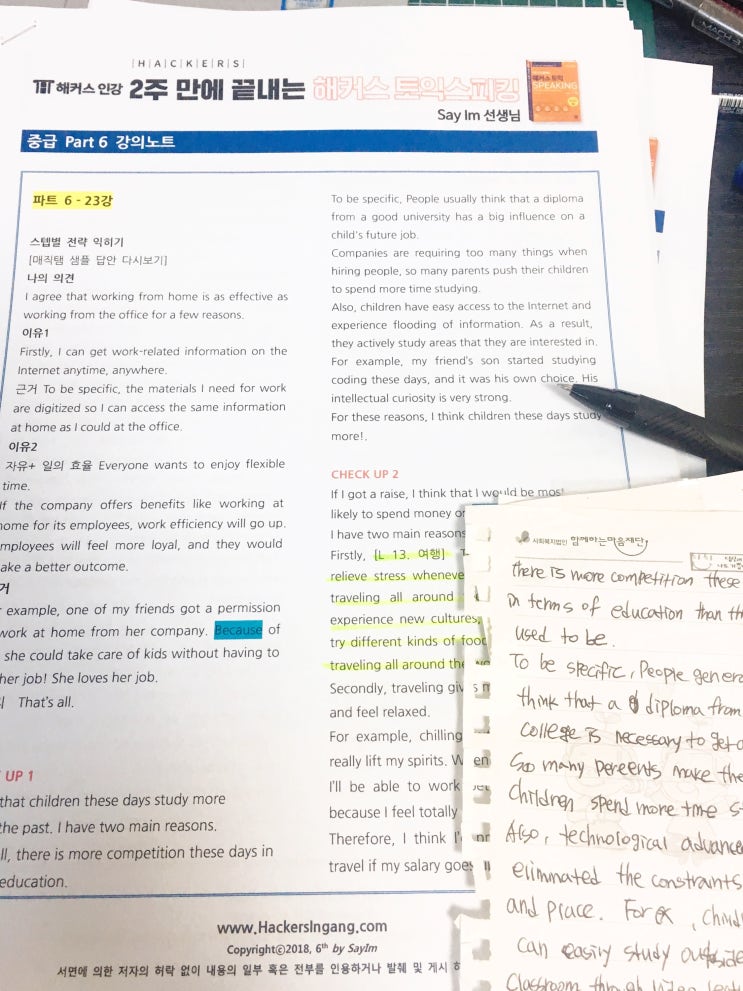 |H|A|C|K|E|R|S|
해커스 인강 2주 만에 끝내는 해커스 토익스피킹
Say Im 선생님
해커스 토익
SPEAKING
중급 Part 6 강의노트
파트 6 - 23강
스텝별 전략 익히기
[매직탬 샘플 답안 다시보기]
나의 의견
I agree that working from home is as effective as
working from the office for a few reasons.
이유1
Firstly, I can get work-related information on the
Internet anytime, anywhere.
근거 To be specific, the materials I need for work
are digitized so I can access the same information
at home as I could at the office.
이유2
자유+ 일의 효율 Everyone wants to enjoy flexible
time.
If the company offers benefits like working at
home for its employees, work efficiency will go up.
mployees will feel more loyal, and they would
ake a better outcome.
거
example, one of my friends got a permission
work at home from her company. Because of
she could take care of kids without having to
her job! She loves her job.
That's all.
UP 1
that children these days study more
the past. I have two main reasons.
ll, there is more competition these days in
education.
To be specific, People usually think that a diploma
from a good university has a big influence on a
child's future job.
Companies are requiring too many things when
hiring people, so many parents push their children
to spend more time studying.
Also, children have easy access to the Internet and
experience flooding of information. As a result,
they actively study areas that they are interested in.
For example, my friend's son started studying
coding these days, and it was his own choice. His
intellectual curiosity is very strong.
For these reasons, I think children these days study
more!.
CHECK UP 2
If I got a raise, I think that I would be most
likely to spend money or
I have two main reasons
Firstly, [L 13. 여행]
relieve stress wheneve
traveling all around
experience new cultures,
try different kinds of food
traveling all around the
Secondly, traveling giv
and feel relaxed.
For example, chilling
really lift my spirits. W
I'll be able to work
because I feel totally
Therefore, I think I'
travel if my salary goes
www.HackersIngang.com
Copyrightⓒ2018, 6th by SayIm
서면에 의한 저자의 허락 없이 내용의 일부 혹은 전부를 인용하거나 발췌 및 게시
사회복지법인 함께하는마음재단
there is more competition these
in terms of education than th
used to be.
To be specific, People genera
think that a diploma from
college is necessary to get a
So many pereents make the
children spend more time s
Also, technological advance
eliminated the constraints
and place. For ex, child
can easily study outside
Classroom through